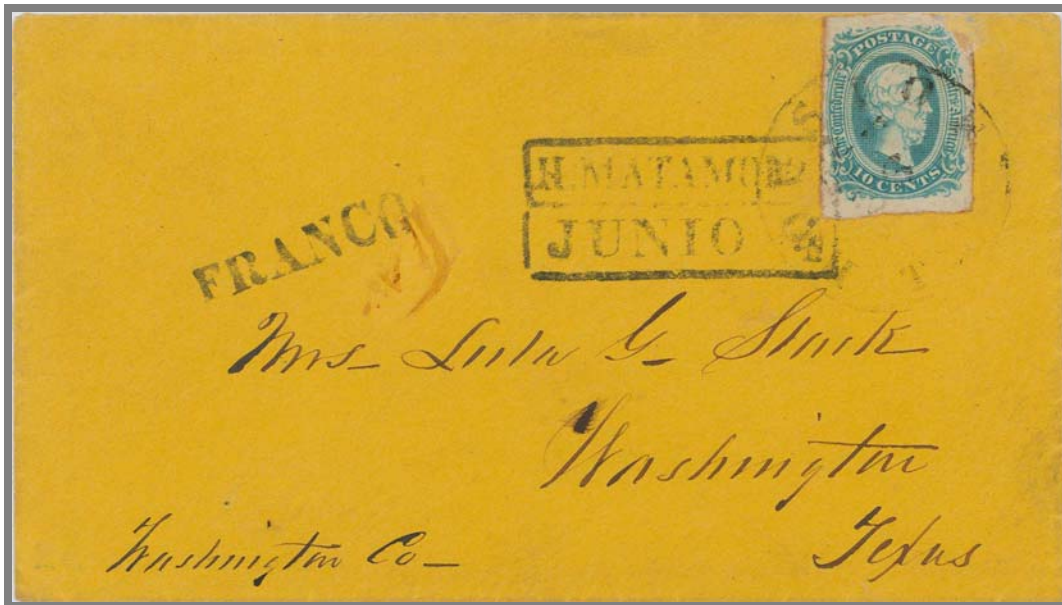 POSTAGE
The Confederate States of America
10 CENTS
H. MATAMOR
JUNIO
FRANCO
Mrs- Lula G- Stark
Washington
Washington Co-
Texas